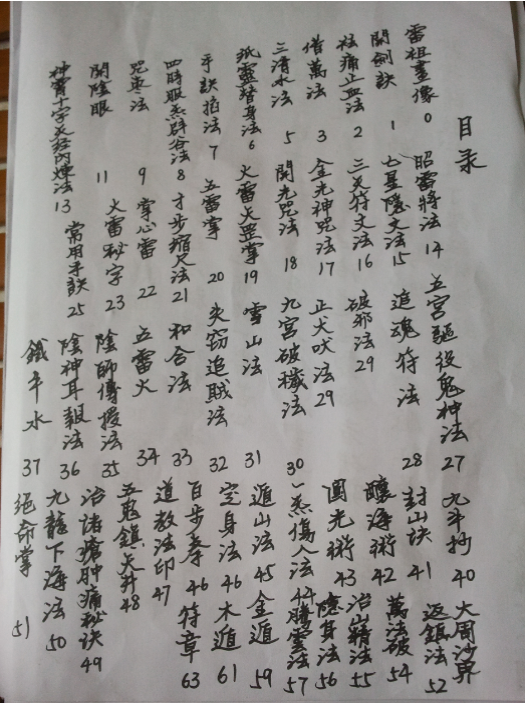 目录
雷祖畫像 0
開劍訣 1
祛痛止血法 2
借萬法 3
三清水法 5
紙靈替身法 6
手訣拍法 7
四時服炁辟谷法 8
咒棗法 9
開陰眼 11
神霄十字天經內煉法 13
昭雷將法 14
七星隱文法 15
三天符文法 16
金光神咒法 17
開光咒法 18
火雷火罡掌 19
五雷掌 20
才步縮尺法 21
掌心雷 22
火雷秘字 23
常用手訣 25
五宮驅役鬼神法 27
追魂符法 28
破邪法 29
正火吠法 29
九宮破穢法 30
雪山法 31
失窃追賊法 32
和合法 33
五雷火 34
陰師傳授法 35
陰神耳報法 36
鐵牛水 37
九斗抄 40
封山訣 41
釀海術 42
圓光術 43
一炁傷人法 44
遁山法 45
定身法 46
百步拳 46
道教法印 47
五鬼鎮天井 48
治諸瘡肿痛秘诀 49
九龍下海法 50
絕命掌 51
大周沙界
返鎮法 52
萬法破 54
治嵓精法 55
隱身法 56
騰雲法 57
金遁 59
木遁 61
符章 63